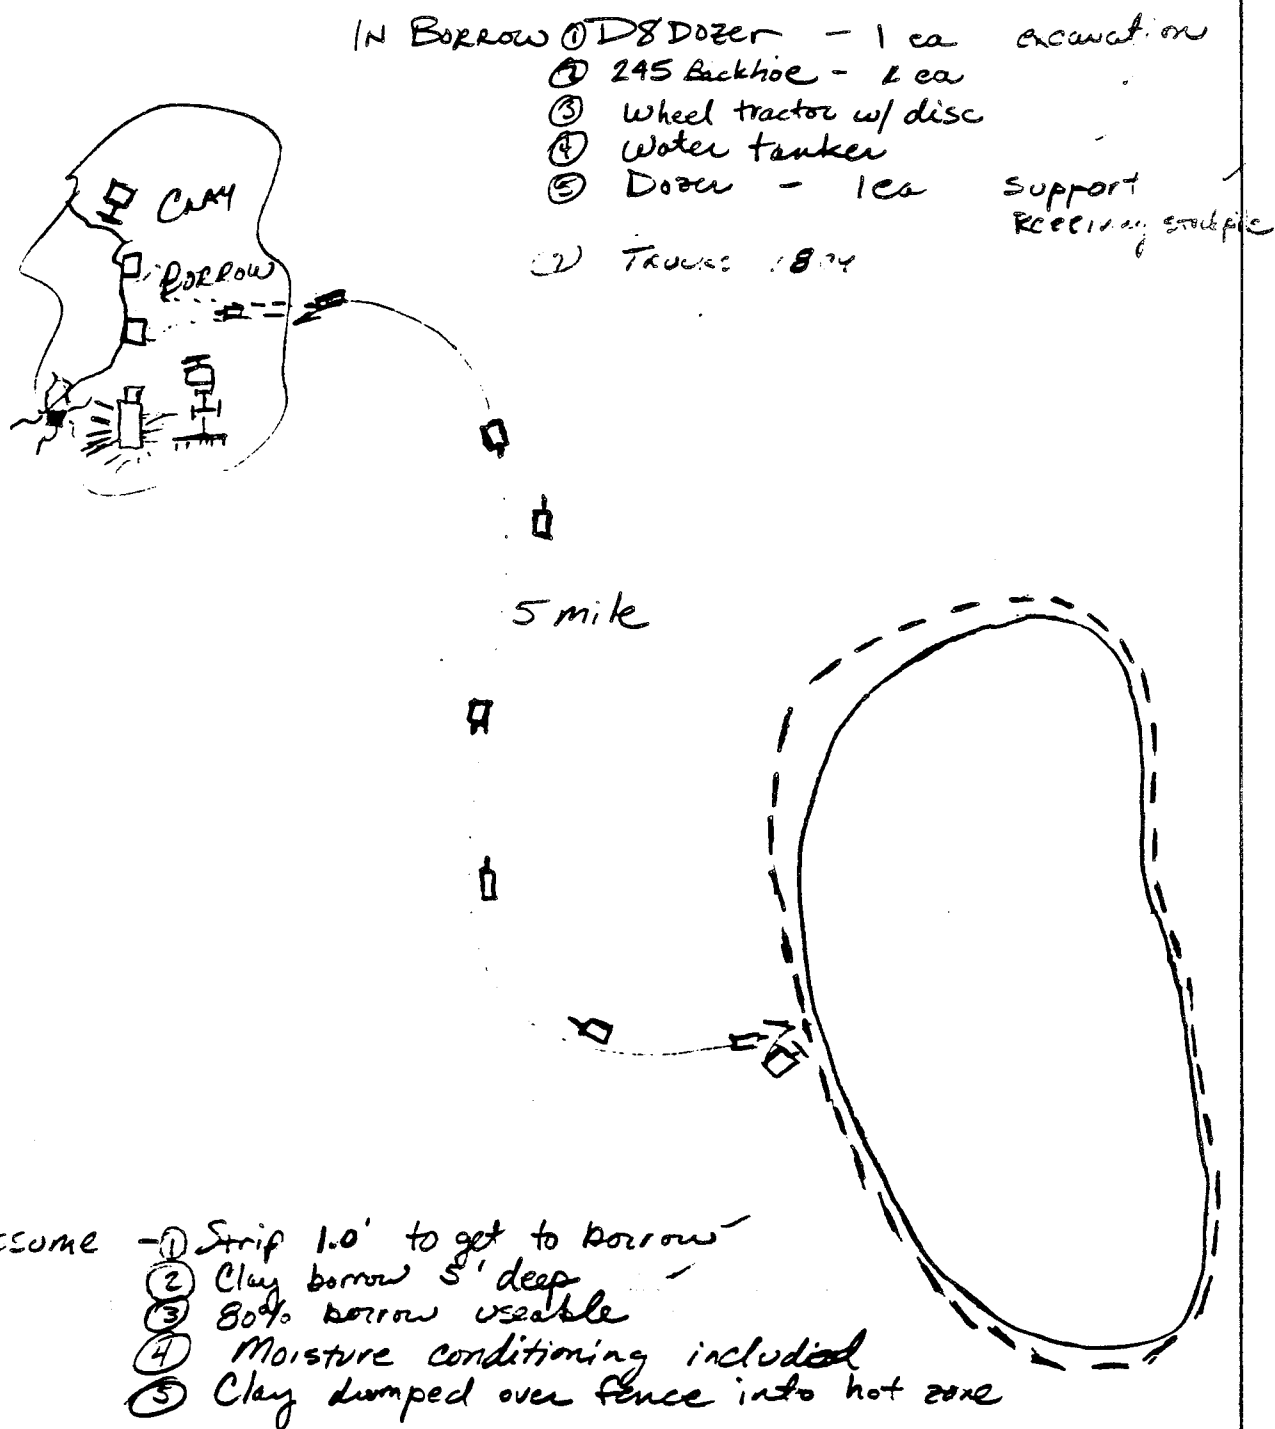 IN BORROW ① D8 Dozer - 1 ea excavation
② 245 Backhoe - 1 ea
③ Wheel tractor w/ disc
④ Water tanker
⑤ Dozer - 1 ea support
Receiving stockpile
CLAY
BORROW
Trucks 18 cy
5 mile
ssume - ① Strip 1.0' to get to borrow
② Clay borrow 5' deep
③ 80% borrow useable
④ Moisture conditioning included
⑤ Clay dumped over fence into hot zone